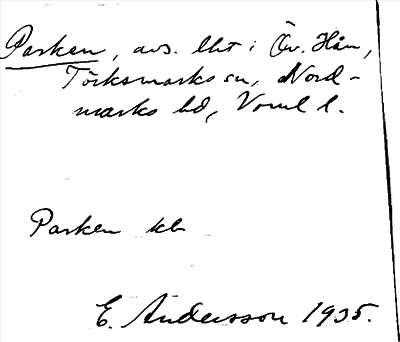 Parken, avs. lht i Öv. Hån,
Töcksmarks sn, Nord-
marks hd, Värml l.
Parken kb
E. Andersson 1935.